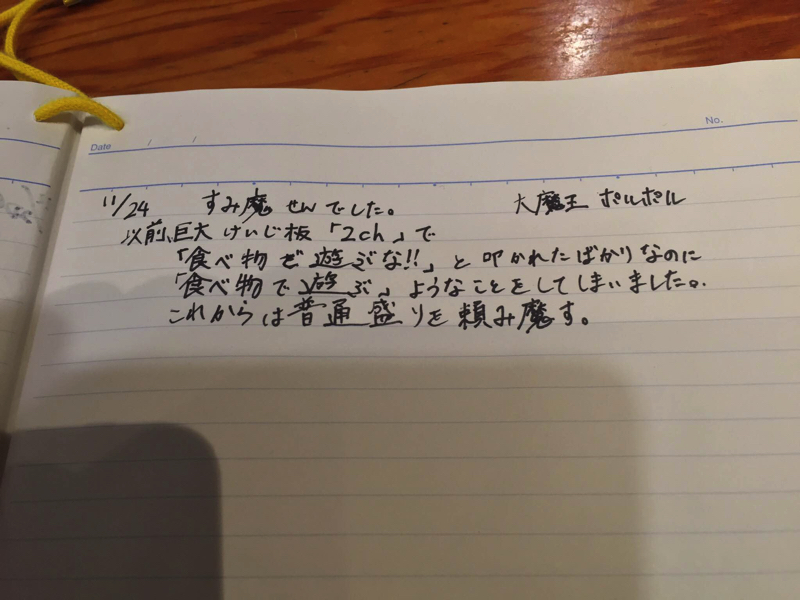 No.
Date
11/24 すみ魔せんでした。 大魔王 ポルポル
以前、巨大けいじ板「2ch」で
「食べ物で遊ぶな!!」と叩かれたばかりなのに
「食べ物で遊ぶ」ようなことをしてしまいました。
これからは普通盛りを頼み魔す。